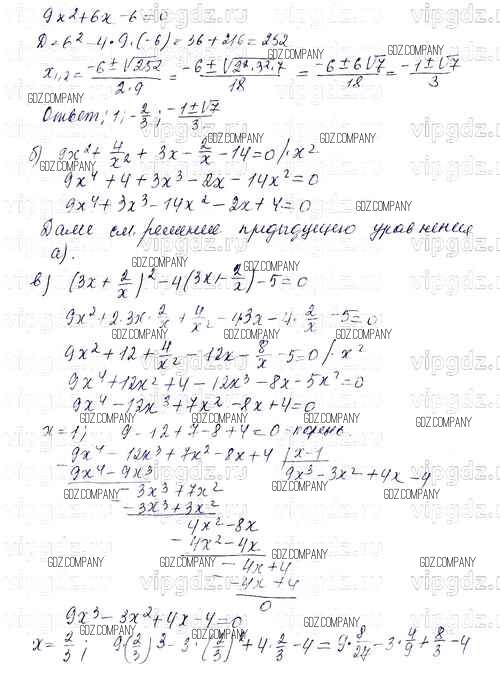 9x²+6x-6=0
D=6²-4·9·(-6)=36+216=252
x₁,₂ = (-6±√252)/(2·9) = (-6±√(2²·3²·7))/18 = (-6±6√7)/18 = (-1±√7)/3
Ответ; 1; -2/3; (-1±√7)/3
б) 9x² + 4/x² + 3x - 2/x - 14=0 /·x²
9x⁴+4+3x³-2x-14x²=0
9x⁴+3x³-14x²-2x+4=0
Далее см. решение предыдущего уравнения
а).
в) (3x + 2/x)² - 4(3x + 2/x) - 5=0
9x²+2·3x·2/x + 4/x² - 4·3x - 4·2/x - 5=0
9x²+12+4/x² - 12x - 8/x - 5=0 /·x²
9x⁴+12x²+4-12x³-8x-5x²=0
9x⁴-12x³+7x²-8x+4=0
x=1; 9-12+7-8+4=0-корень.
9x⁴-12x³+7x²-8x+4 | x-1
9x⁴-9x³ 9x³-3x²+4x-4
-3x³+7x²
-3x³+3x²
4x²-8x
4x²-4x
-4x+4
-4x+4
0
9x³-3x²+4x-4=0
x=2/3; 9(2/3)³-3·(2/3)²+4·2/3-4=9·8/27-3·4/9+8/3-4
GDZ.COMPANY
vipgdz.ru